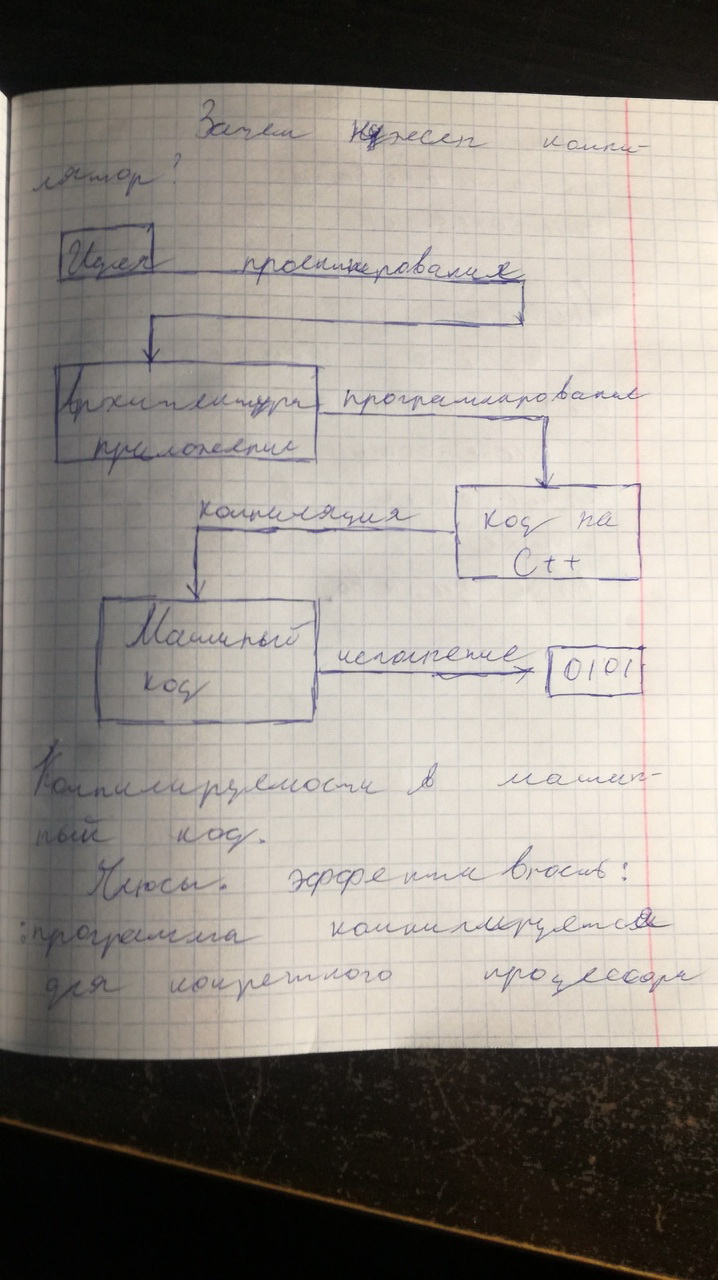 Зачем нужен компи-
лятор?
Идея проектирование
Архитектура программирование
приложение
компиляция код на
C++
Машиный исполнение 0101
код
Компилируемости в машин-
ный код.
Плюсы. эффективность:
:программа компилируется
для конкретного процессора